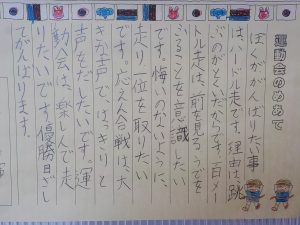 運動会のめあて
ぼくががんばりたい事
は、ハードル走です。理由は、跳
ぶのがとくいだからです。百メー
トル走は、前を見る、うでを
ふることを意識したい
です。悔いのないように、
走り一位を取りたい
です。応えん合戦は、大
きな声で、はっきりと
声をだしたいです。運
動会は、楽しんで走
りたいです。優勝目ざし
てがんばります。